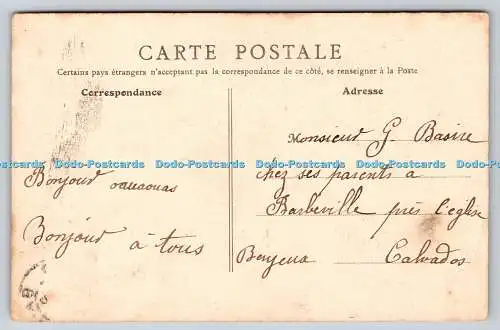 CARTE POSTALE
Certains pays étrangers n'acceptent pas la correspondance de ce côté, se renseigner à la Poste
Correspondance
Adresse
Monsieur G. Basire
Dodo-Postcards Dodo-Postcards Dodo-Postcards Dodo-Postcards Dodo-Postcards Dodo-Postcards
chez ses parents a
Bonjour
Barbeville près l'eglise
Bonjour à tous
Calvados